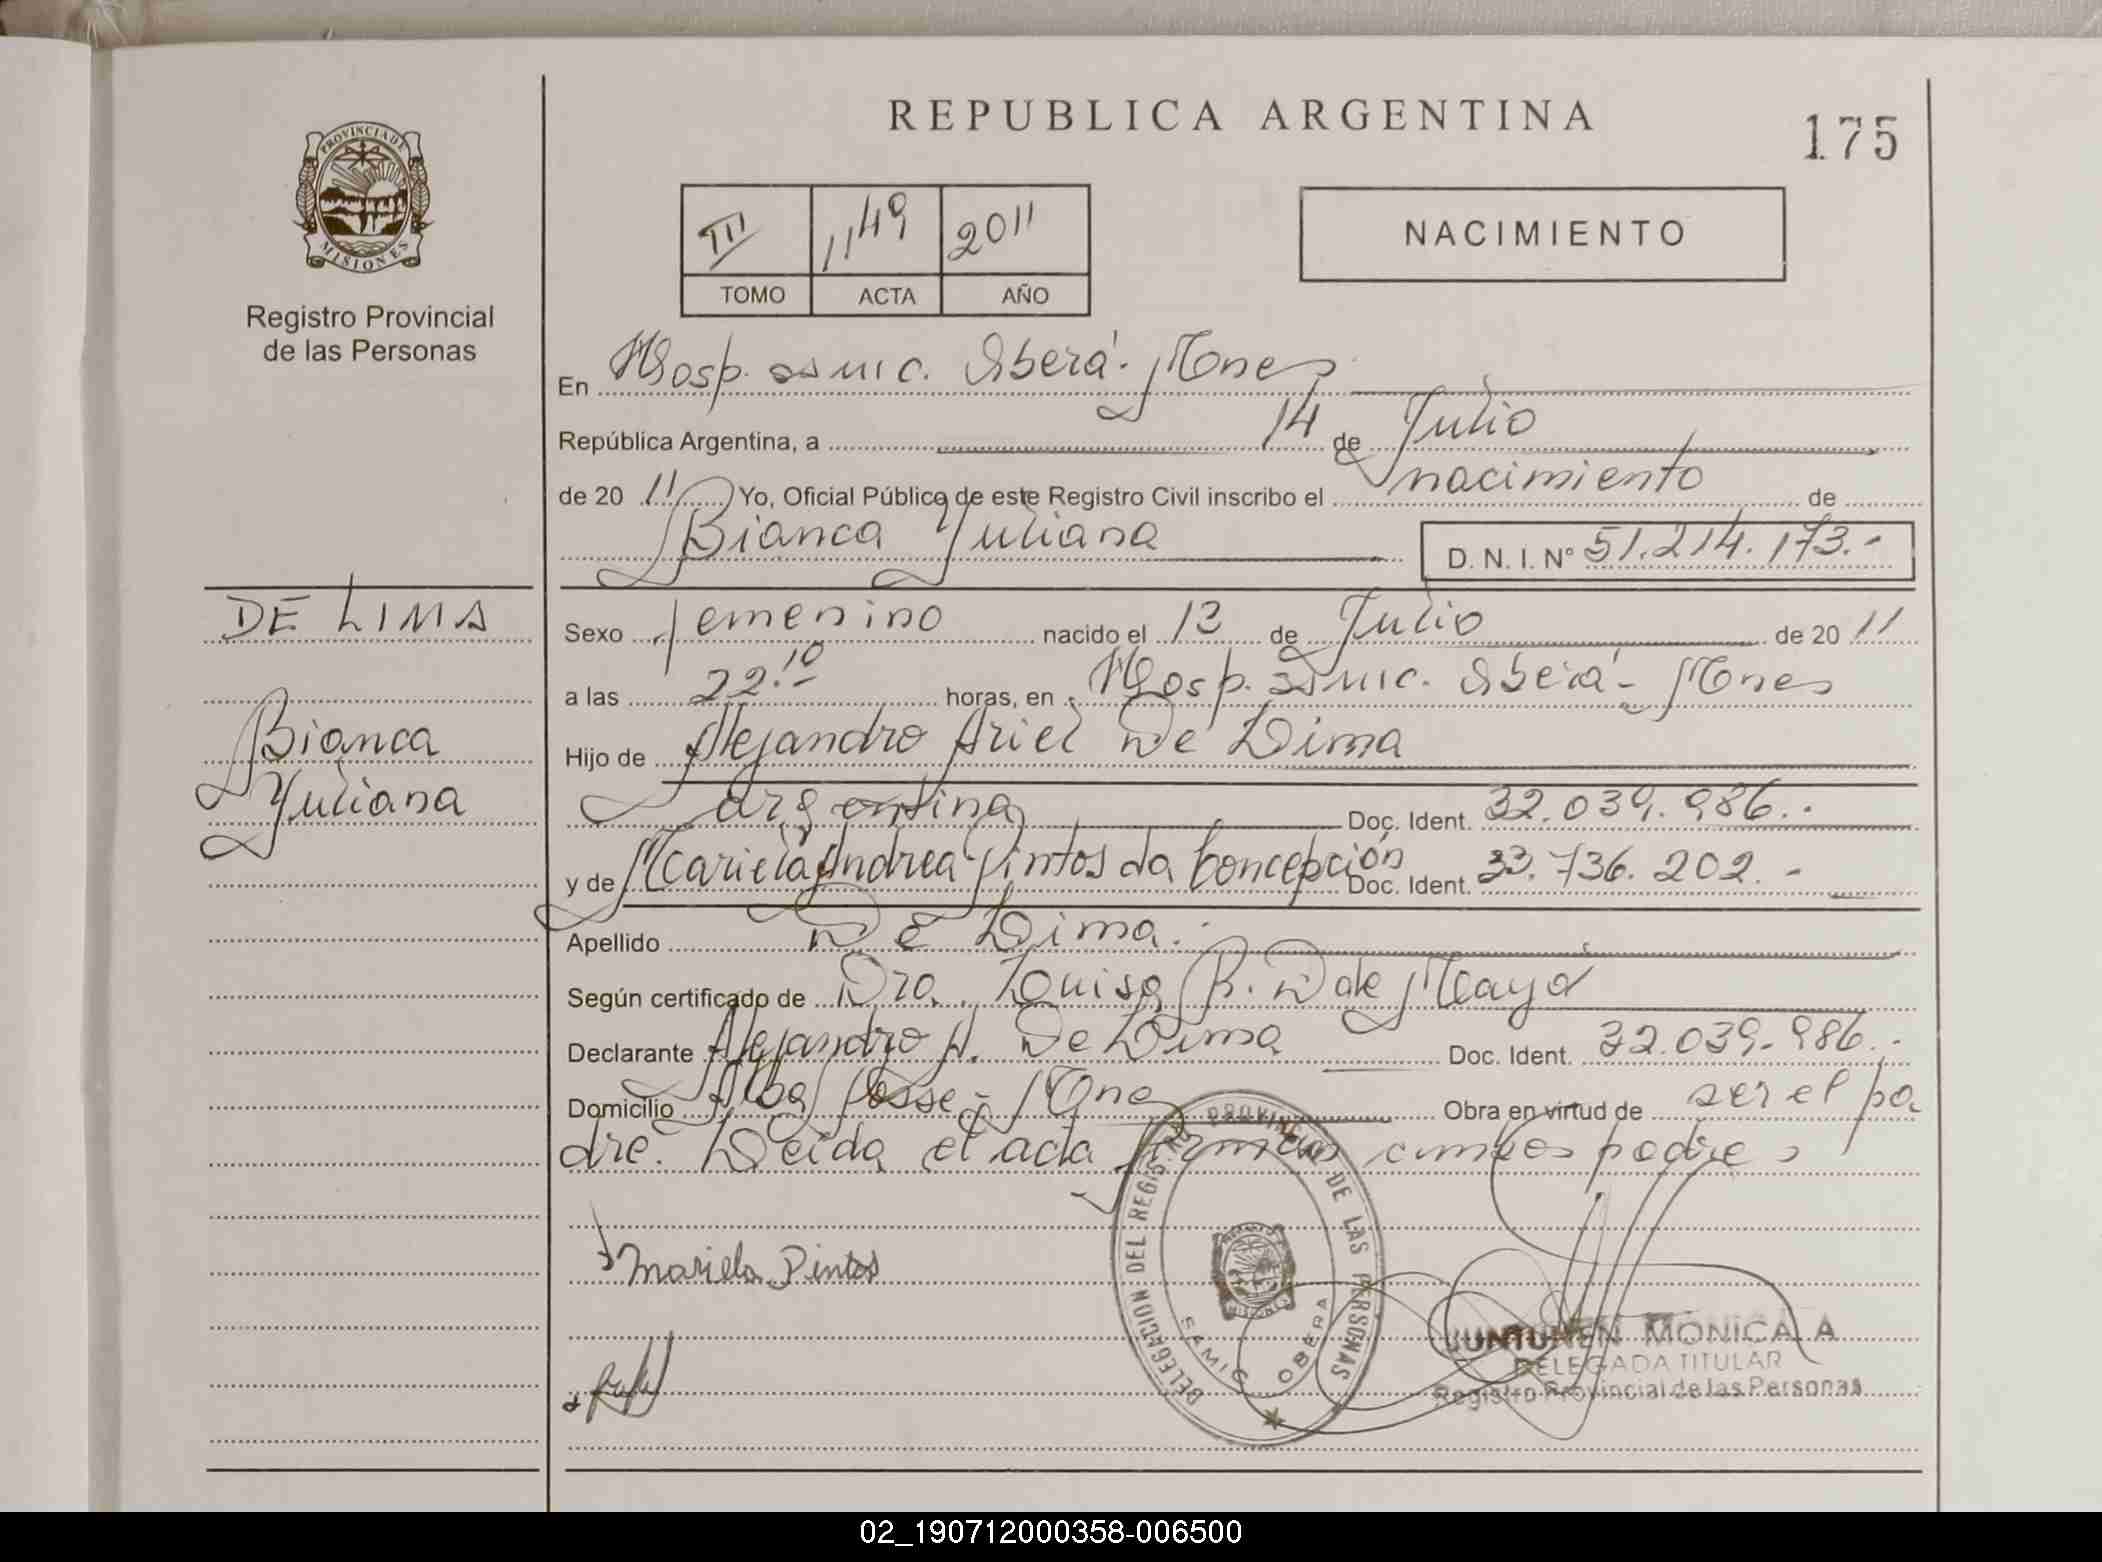 REPUBLICA ARGENTINA
175
PROVINCIA DE
MISIONES
Registro Provincial
de las Personas
III 1149 2011
TOMO ACTA AÑO
NACIMIENTO
En Hosp. SAMIC. Oberá - Mnes
República Argentina, a 14 de Julio
de 20 11 Yo, Oficial Público de este Registro Civil inscribo el nacimiento de
Bianca Yuliana D. N. I. N° 51.214.173.-
DE LIMA
Bianca
Yuliana
Sexo femenino nacido el 13 de Julio de 20 11
a las 22.10 horas, en Hosp. SAMIC. Oberá - Mnes
Hijo de Alejandro Ariel De Lima
argentina Doc. Ident. 32.039.986.-
y de Mariela Andrea Pintos da Concepción Doc. Ident. 33.736.202.-
Apellido De Lima.-
Según certificado de Dra. Luisa R. D de Maya
Declarante Alejandro A. De Lima Doc. Ident. 32.039.986.-
Domicilio Alba Posse - Mnes Obra en virtud de ser el pa
dre. Leida el acta firman ambos padres
Mariela Pintos
DELEGACION DEL REGISTRO PROVINCIAL DE LAS PERSONAS
SAMIC OBERA
JUNTUNEN MONICA A
DELEGADA TITULAR
Registro Provincial de las Personas
02_190712000358-006500